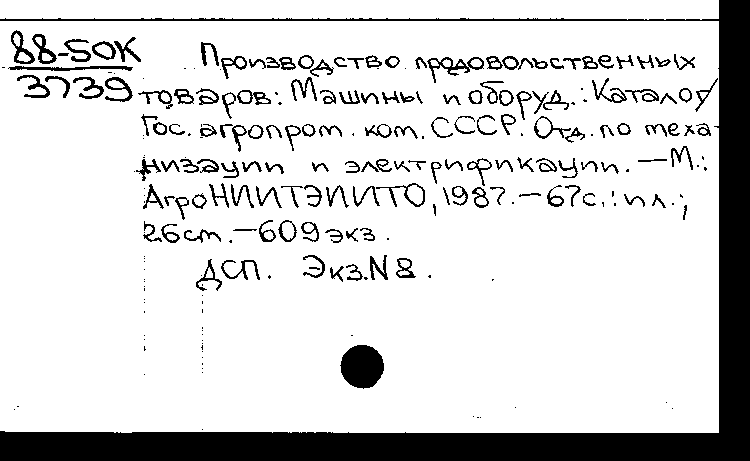 88-50К
3739
Производство продовольственных
товаров: Машины и оборуд.: Каталог/
Гос. агропром. ком. СССР. Отд. по меха-
низации и электрификации. —М.:
АгроНИИТЭИИТО, 1987.—67с.: ил.;
26см.—609экз.
ДСП. Экз.N8.